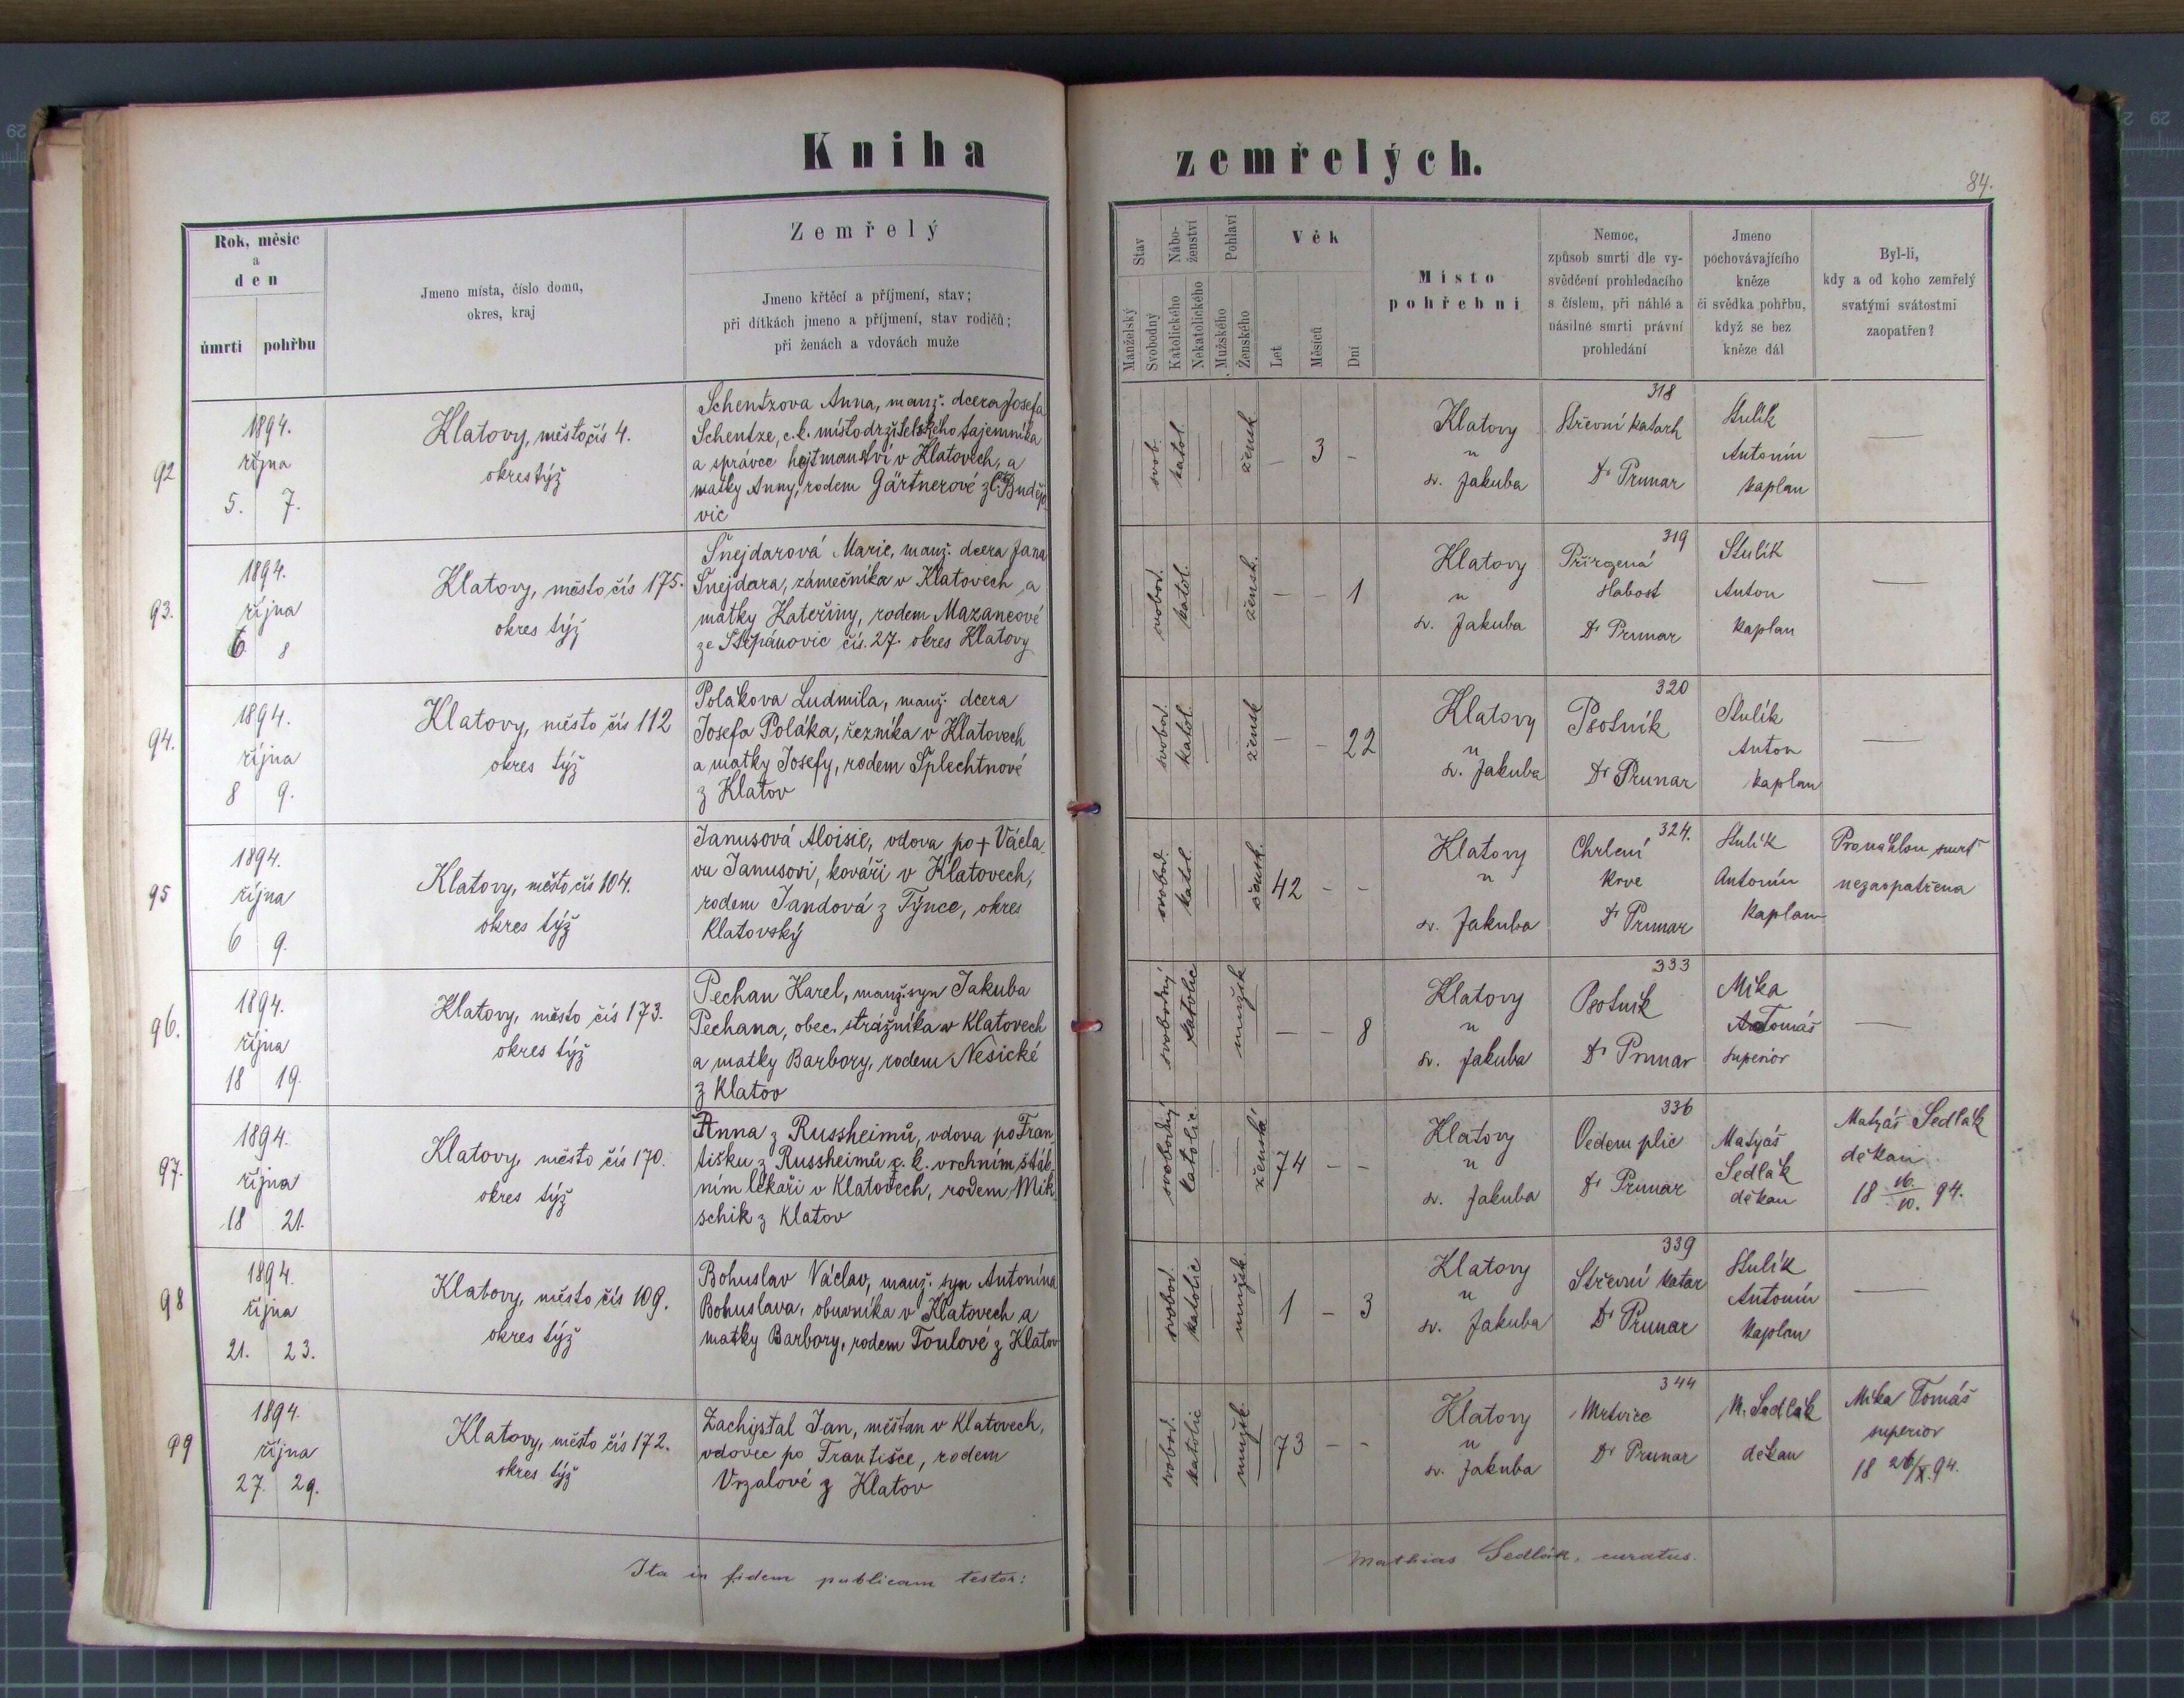 Kniha zemřelých.
84.
Rok, měsíc
a
den
úmrtí pohřbu
Jmeno místa, číslo domu,
okres, kraj
Zemřelý
Jmeno křtěcí a příjmení, stav;
při dítkách jmeno a příjmení, stav rodičů;
při ženách a vdovách muže
Stav
Manželský
Svobodný
Nábo-
ženství
Katolického
Nekatolického
Pohlaví
Mužského
Ženského
Věk
Let
Měsíců
Dní
Místo
pohřební
Nemoc,
způsob smrti dle vy-
svědčení prohledacího
s číslem, při náhlé a
násilné smrti právní
prohledání
Jmeno
pochovávajícího
kněze
či svědka pohřbu,
když se bez
kněze dál
Byl-li,
kdy a od koho zemřelý
svatými svátostmi
zaopatřen?
92
1894.
října
5. 7.
Klatovy, město, čís 4.
okres týž
Schentzova Anna, manž. dcera Josefa
Schentze, c.k. místodržitelského tajemníka
a správce hejtmanství v Klatovech, a
matky Anny, rodem Gärtnerové z Č. Budějo-
vic
svob.
katol.
žensk
— 3 –
Klatovy
u
sv. Jakuba
318
Střevní katarh
Dr Prunar
Stulík
Antonín
kaplan
—
93.
1894.
října
6. 8
Klatovy, město, čís 175.
okres týž
Šnejdarová Marie, manž. dcera Jana
Šnejdara, zámečníka v Klatovech a
matky Kateřiny, rodem Mazancové
ze Štěpánovic čís. 27. okres Klatovy
svobod.
katol.
žensk.
— – 1
Klatovy
u
sv. Jakuba
319
Přirozená
slabost
Dr Prunar
Stulík
Anton
kaplan
—
94.
1894.
října
8 9.
Klatovy, město čís 112
okres týž
Polakova Ludmila, manž. dcera
Josefa Poláka, řezníka v Klatovech
a matky Josefy, rodem Šplechtnové
z Klatov
svobod.
katol.
žensk
— – 22
Klatovy
u
sv. Jakuba
320
Psotník
Dr Prunar
Stulík
Anton
kaplan
—
95
1894.
října
6 9.
Klatovy, město, čís 104.
okres týž
Janusová Aloisie, vdova po + Václa-
vu Janusovi, kováři v Klatovech,
rodem Jandová z Týnce, okres
Klatovský
svobod.
katol.
žensk.
42 – –
Klatovy
u
sv. Jakuba
324.
Chrlení
krve
Dr Prunar
Stulík
Antonín
kaplan
Pro náhlou smrt
nezaopatřena
96.
1894.
října
18 19.
Klatovy, město čís 173.
okres týž
Pechan Karel, manž. syn Jakuba
Pechana, obec. strážníka v Klatovech
a matky Barbory, rodem Nesické
z Klatov
svobodný
katolic
mužsk
— – 8
Klatovy
u
sv. Jakuba
333
Psotník
Dr Prunar
Míka
Tomáš
superior
—
97.
1894.
října
18 21.
Klatovy, město čís 170.
okres týž
Anna z Russheimů, vdova po Fran-
tišku z Russheimů c. k. vrchním štáb-
ním lékaři v Klatovech, rodem Mik-
schik z Klatov
svobodný
katolic
ženská
74 – –
Klatovy
u
sv. Jakuba
336
Oedem plic
Dr Prunar
Matyáš
Sedlák
děkan
Matyáš Sedlák
děkan
18 16/10. 94.
98
1894.
října
21. 23.
Klatovy, město čís 109.
okres týž
Bohuslav Václav, manž. syn Antonína
Bohuslava, obuvníka v Klatovech a
matky Barbory, rodem Toulové z Klatov
svobod.
katolic
mužsk.
1 – 3
Klatovy
u
sv. Jakuba
339
Střevní katar
Dr Prunar
Stulík
Antonín
kaplan
—
99
1894.
října
27. 29.
Klatovy, město čís 172.
okres týž
Zachystal Jan, měšťan v Klatovech,
vdovec po Františce, rodem
Vrzalové z Klatov
svobod.
katolic
mužsk.
73 – –
Klatovy
u
sv. Jakuba
344
Mrtvice
Dr Prunar
M. Sedlák
děkan
Míka Tomáš
superior
18 26/X. 94.
Ita in fidem publicam testor: Mathias Sedlák, curatus.